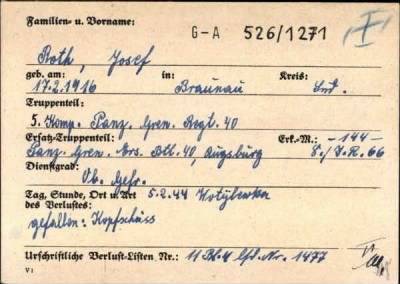 Familien- u. Vorname:
G-A 526/1271
I
Roth, Josef
geb. am: in: Kreis:
17.2.1916 Braunau Sud.
Truppenteil:
5. Komp. Panz. Gren. Regt. 40
Ersatz-Truppenteil: Erk.-M.: -144-
Panz. Gren. Ers. Btl. 40, Augsburg S./I.R. 66
Dienstgrad:
Ob. Gefr.
Tag, Stunde, Ort u. Art 5.2.44 Kotylewka
des Verlustes:
gefallen: Kopfschuss
Urschriftliche Verlust-Listen Nr.: 11 Bl. 4 lfd. Nr. 1477
V 1